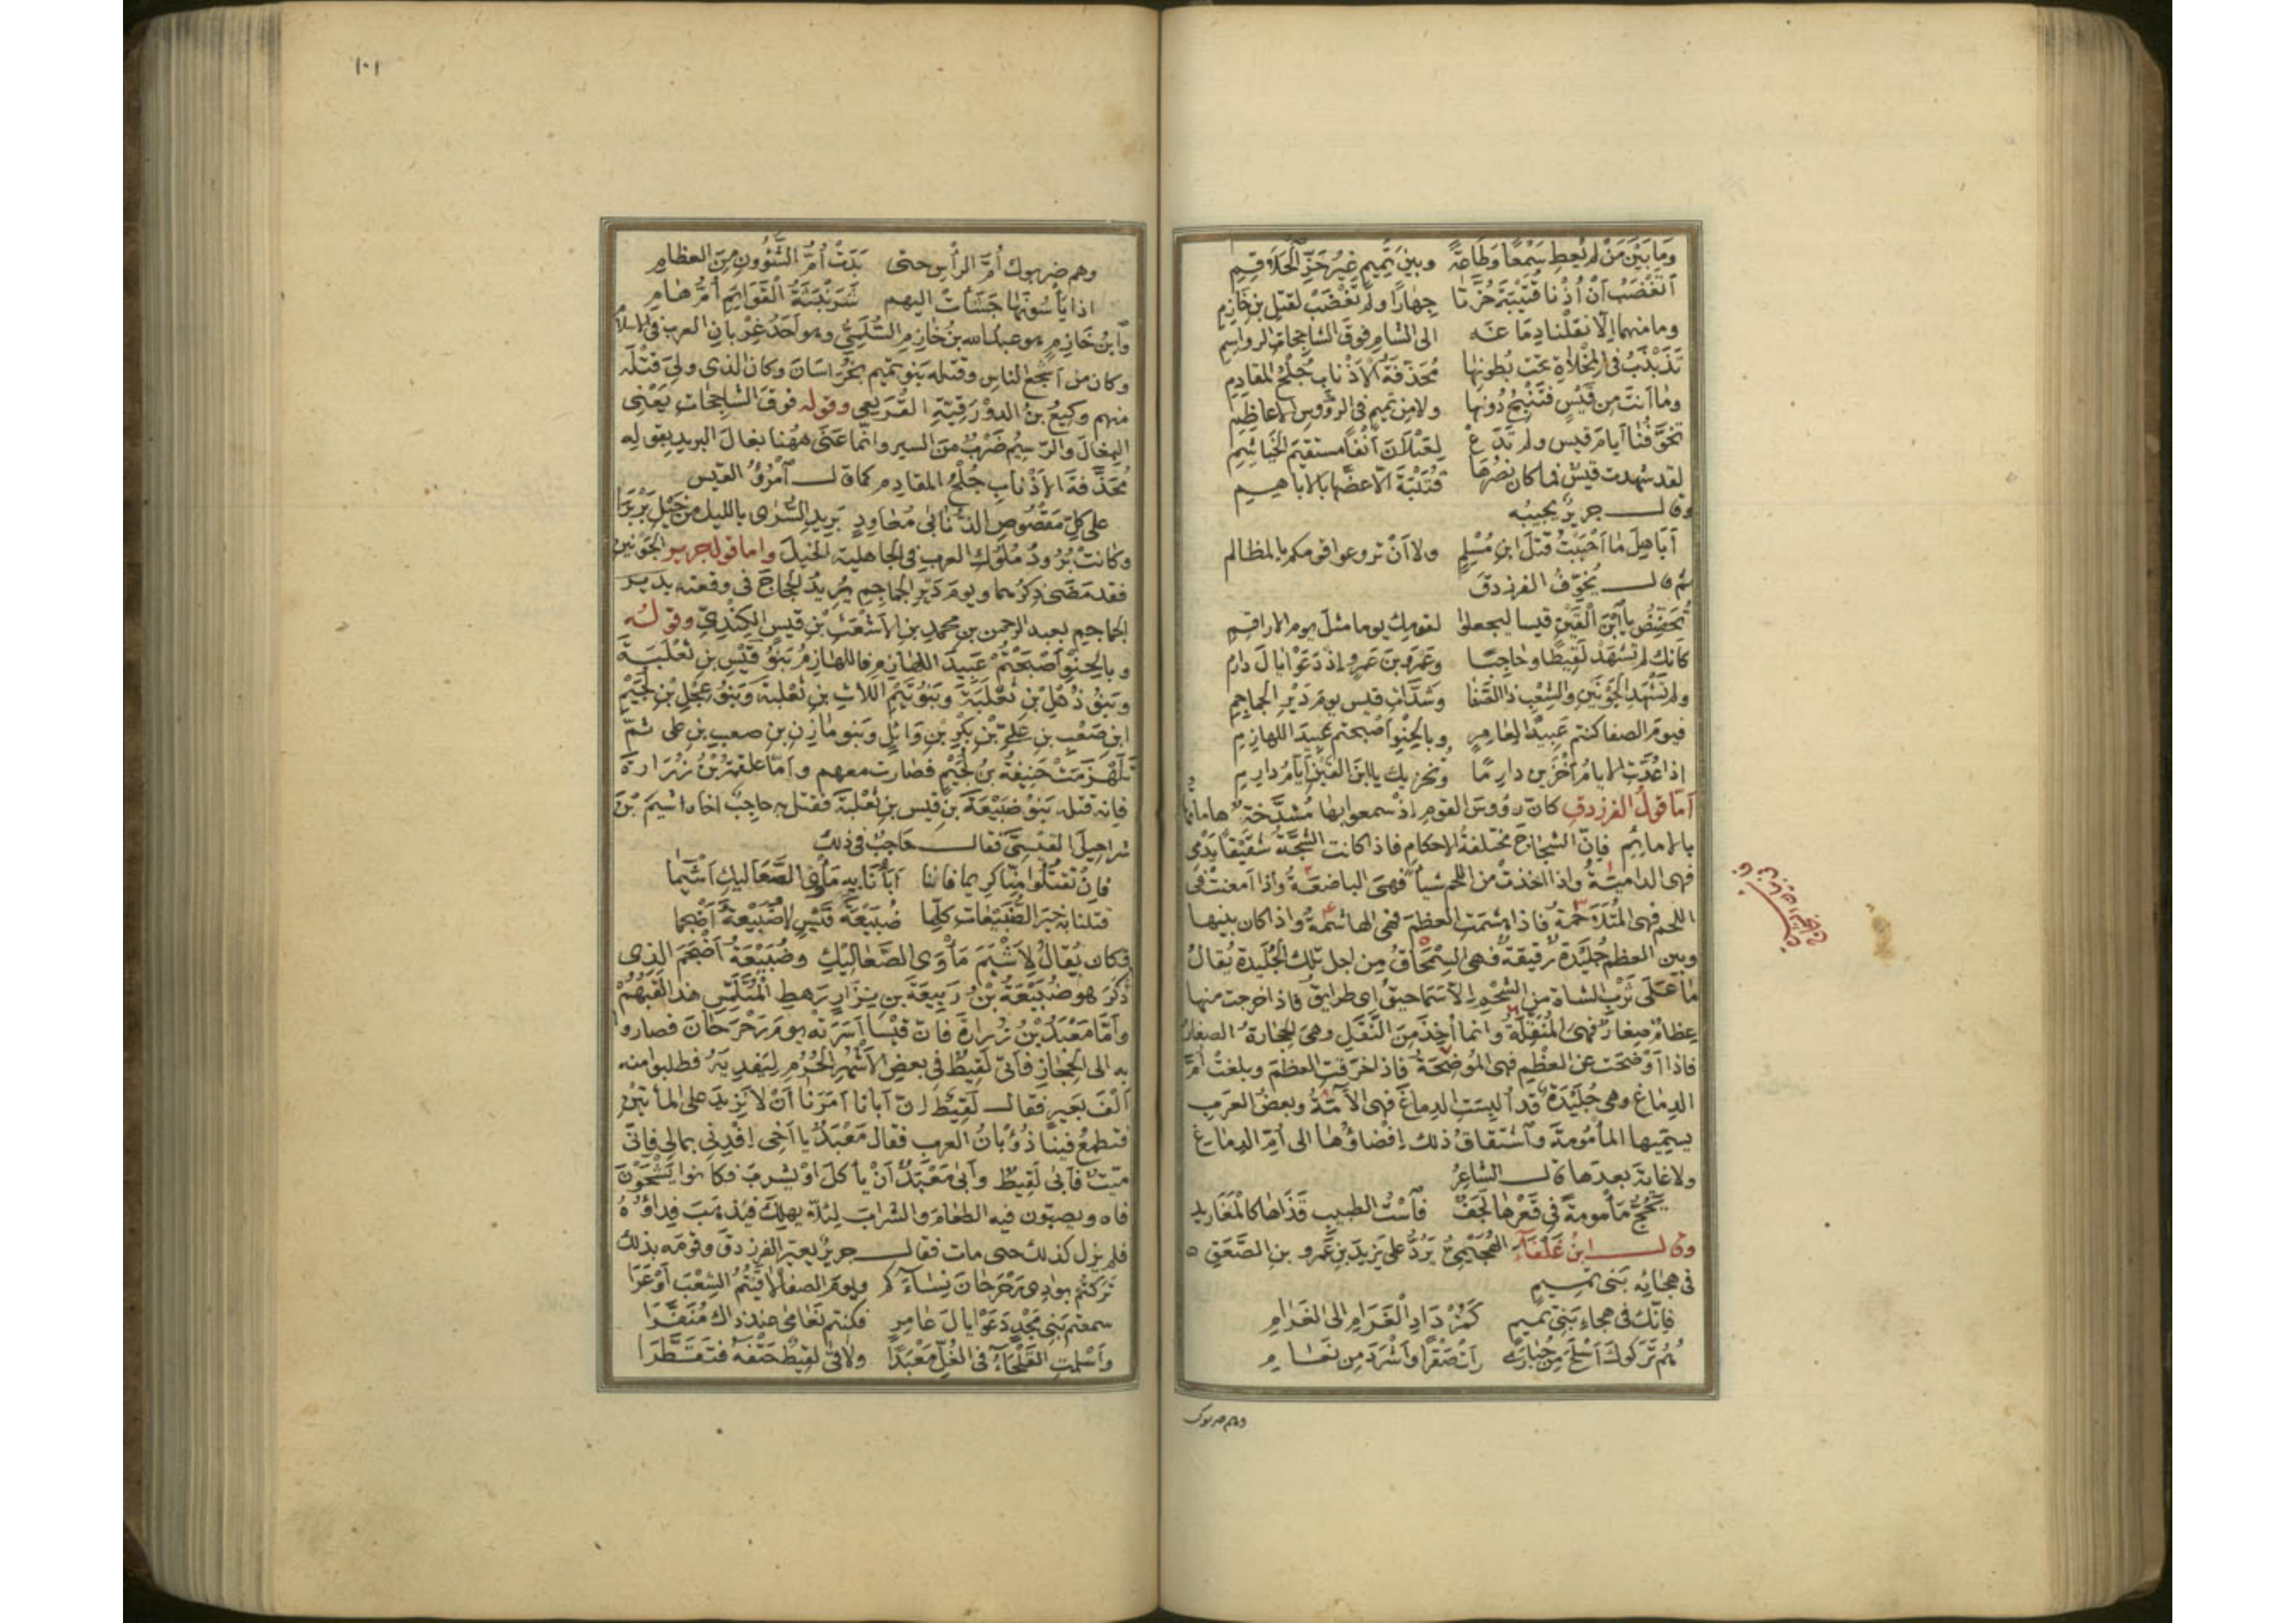 وَمَا بَيْنَ مَنْ لم يُعطِ سَمْعًا وَطَاعَةً وبين تَمِيمٍ غيرُ حَزِّ الْحَلَاقِمِ
أَتَغْضَبُ اَنْ أُذْنَا قُتَيْبَةَ حُزَّتَا جِهارًا ولم تَغْضَبْ لقتلِ بنِ خَازِمِ
وما منهما اِلّا نقلْنا دِمَاغَه الى الشامِ فوق الشاحجات الرواسِمِ
تَذَبْذَبُ فى المِخْلاةِ تحت بُطونها مُحَذَّفَةَ الاَذْنابِ جُلْحَ المقادِمِ
وما انتَ من قَيْسٍ فتَنْبِحُ دُونها ولا من تميمٍ فى الرؤوس الاعاظِمِ
تخوّفُنا ايامَ قيسٍ ولم تَدَعْ لِعَيْلَانَ أنْفًا مستقيمَ الخَيَاشِمِ
لقد شهدت قيسٌ فما كان نصرُها قُتَيْبَةَ الّا عضّها بالاباهيم
وقال جريرٌ يجيبُه
أبَاهِلَ ما اَحْبَبْتُ قتلَ ابنِ مُسْلِمٍ ولا اَنْ تروعوا قومكم بالمظالم
ثم قال يُخَوِّفُ الفرزدقَ
تُحَضِّضُ يا ابْنَ القَيْنِ قيسا ليجعلوا لقومك يوما مثلَ يوم الاراقِمِ
كأنك لم تشهدْ لَقِيطًا وحَاجِبًا وعَمْرَو بنَ عَمْرٍو إذ دَعَوْا يالَ دارِمِ
ولم تَشْهَدِ الجَوْنَينِ والشِعْبَ ذا الصَّفا وشَدَّاتِ قيسٍ يومَ دَيْرِ الجماجِمِ
فيومَ الصفا كنتم عَبِيدًا لِعَامِرٍ وبالحِنْوِ اَصبحتم عَبِيدَ اللهازِمِ
اذا عُدَّتِ الايامُ اَخْزَيْنَ دارِمًا وتخزيك يا ابنَ القَيْنِ اَيَّامُ دارِمِ
اَمّا قولُ الفرزدقِ كانّ رؤوسَ القومِ إذ سمعوا بها مُشَدَّخةٌ هاماتُها
بالامائِمِ فإنّ الشِجاجَ مختلفةُ الاحكامِ فاذا كانت الشَّجَّةُ شُقَيْقًا يَدْمَى
فهى الدامِيَةُ واذا اخذتْ من اللحم شيأً فهى الباضِعَةُ واذا اَمعنتْ فى
اللحم فهى المُتَلَاحِمَةُ فاذا هشمت العظمَ فهى الهاشِمةُ واذا كان بينها
وبين العظمِ جُلَيْدَةٌ رقيقةٌ فهى السِمْحَاقُ من اجل تلك الجُلَيدة يُقال
ما عَلَى ثَرْبِ الشاةِ من الشَحْمِ الّا سَمَاحيقُ اى طرايقُ فاذا خرجت منها
عِظامٌ صِغارٌ فهى المُنَقِّلةُ وانما أُخِذَ مِنَ النَّقَلِ وهى الحِجارةُ الصغارُ
فاذا اَوْضحت عن العظمِ فهى المُوضِحَةُ فاذا خرقت العظمَ وبلغتْ اُمَّ
الدِماغِ وهى جُلَيْدَةٌ قد اُلبِسَت الدِماغَ فهى الآمّةُ وبعضُ العرب
يسمّيها المأمُومةَ واشتقاقُ ذلك إفْضاؤُها الى أُمِّ الدماغِ
ولا غايةَ بعدها قال الشاعِرُ
يَحُجُّ مَأمُومةً فى قَعْرِها لَجَفٌ فَاسْتُ الطبيبِ قَذَاها كالمَغَارِيدِ
وقال ابنُ غَلْفَاءَ الهُجَيْمِىُّ يَرُدُّ على يَزِيدَ بنِ عَمْرِو بنِ الصَّعِقِ
فى هجائِه بَنى تميمٍ
فإنّك فى هجاءِ بَنِى تميمٍ كَمُزْدَادِ الغَرَامِ الى الغَرَامِ
هُم تَرَكوكَ اَسْلَحَ مِن حُبَارَى رَأتْ صَقْرًا واَشْرَدَ من نَعَامِ
وهم ضربوك
١٠١
وهم ضربوك أُمَّ الرأسِ حتى بَدَتْ أُمُّ الشُّؤُونِ مِنَ العظامِ
اذا يَأْسُونها جَشَأتْ اليهم شَرَنْبَثَةُ القَوَايِمِ أمُّ هامِ
وابنُ خَازِمٍ هو عبدُ الله بنُ خازِمٍ السُّلَمِىُّ وهو اَحَدُ غِرْبانِ العرب فى الاسلام
وكان من اَشْجَعِ الناسِ وقتله بَنو تميمٍ بخُرَاسَانَ وكان الذى ولِىَ قَتْلَه
منهم وكيعُ بنُ الدَوْرَقِيَّةِ القُرَيْعى وقوله فوقَ الشاحِجَاتِ يَعْنِى
البِغالَ والرَّسِيمُ ضَرْبٌ من السيرِ وانّما عَنَى ههُنا بغالَ البريدِ بقوله
مُحَذَّفةَ الاَذْنابِ جُلْحَ المقادِمِ كما قال امْرُؤُ القيس
على كلّ مَقْصُوصِ الذُّنَابَى مُعَاوِدٍ بَرِيدِ السُّرَى بالليلِ من خَيْلِ بَرْبَرَا
وكانتْ بُرُودُ مُلُوكِ العربِ فى الجاهلية الخيلَ واما قولُ جريرٍ الجَوْنَينِ
فقد مَضَى ذِكرُهما ويومَ دَيْرِ الجماجِمِ يُرِيدُ الحجاجَ فى وقعته بدير
الجماجِمِ بعبد الرحمن بن محمدِ بنِ الاَشْعَثِ بْنِ قيس الكِنْدِىِّ وقولُه
وبالحِنْوِ اَصْبَحْتُم عَبِيدَ اللهازِمِ فاللهازِمُ بَنُو قَيْسِ بنِ ثعْلَبَةَ
وبَنُو ذُهْلِ بْنِ ثَعْلَبَةَ وبَنُو تَيْمِ اللّاتِ بنِ ثعْلَبةَ وبَنُو عِجْلِ بْنِ لُجَيْمِ
ابن صَعْبِ بنِ عَلِىِّ بْنِ بَكْرِ بْنِ وَائِلٍ وبَنو مازِنِ بن صعبِ بنِ على ثمّ
تَلَهْزَمَتْ حَنِيفَةُ بنُ لُجَيْمٍ فصارت معهم واَمّا علقمةُ بْنُ زُرَارةَ
فإنه قتله بَنو ضُبَيْعَةَ بنِ قيسِ بنِ ثَعْلبةَ فقتل به حاجِبٌ اخاه اشيمَ بْنَ
شراحِيلَ القيْسِىَّ فقال حاجِبٌ فى ذلك
فإن تَقتُلوا منّا كريما فاننا اَبَأْنَا به مَأوَى الصَّعَاليكِ اَشْيَما
قتلنا به خيرَ الضُّبَيْعاتِ كلِّها ضُبَيْعَةَ قَيْسٍ لا ضُبَيْعةَ اَضْجما
فكان يُقالُ لِاَشْيَمَ مَأْوَى الصَّعالِيكِ وضُبَيْعَةُ اَضْجَمَ الذى
ذَكَرَ هو ضُبَيْعَةُ بْنُ رَبِيعَةَ بنِ نِزَارٍ رَهط المُتَلَمِّسِ هذا لَقَبُهُمْ
واَمّا مَعْبَدُ بْنُ زُرارةَ فان قَيْسًا اَسَرَتْه يومَ رَحْرَحَانَ فصاروا
به الى الحِجَازِ فأتى لَقِيطٌ فى بعض الاَشْهُرِ الحُرُمِ لِيَفدِيَه فطلبوا منه
اَلْفَ بَعِيرٍ فقال لَقِيطٌ إنّ اَبانا اَمَرَنا اَنْ لا نَزِيدَ على المأتينِ
فتطمعَ فينا ذُؤْبانُ العرب فقال مَعْبَدٌ يا اَخِى إفْدِنِى بمالِى فإنّى
ميّتٌ فأبى لَقِيطٌ واَبَى مَعْبَدٌ اَنْ ياْكلَ اوْ يشربَ فكانوا يَشْحَوْنَ
فاه ويصبّون فيه الطعامَ والشرابَ لِئلّا يهلِكَ فيذهبَ فِداؤُهُ
فلم يزل كذلك حتى مات فقال جريرٌ يعيّر الفرزدقَ وقومَه بذلك
تَرَكتُم بوادى رَحْرَحَانَ نِسَاءَكم ويومَ الصفا لاقَيْتُمُ الشِعْبَ اَوْعَرَا
سمعتم بَنِى مَجْدٍ دَعَوْا يالَ عَامِرٍ فكنتم نَعَامًا عند ذاك مُنَفَّرَا
واَسْلَمتِ القَلْحَاءُ فى الغُلِّ مَعْبَدًا ولاقَى لقِيطٌ حَتْفَهُ فتَقَطَّرَا